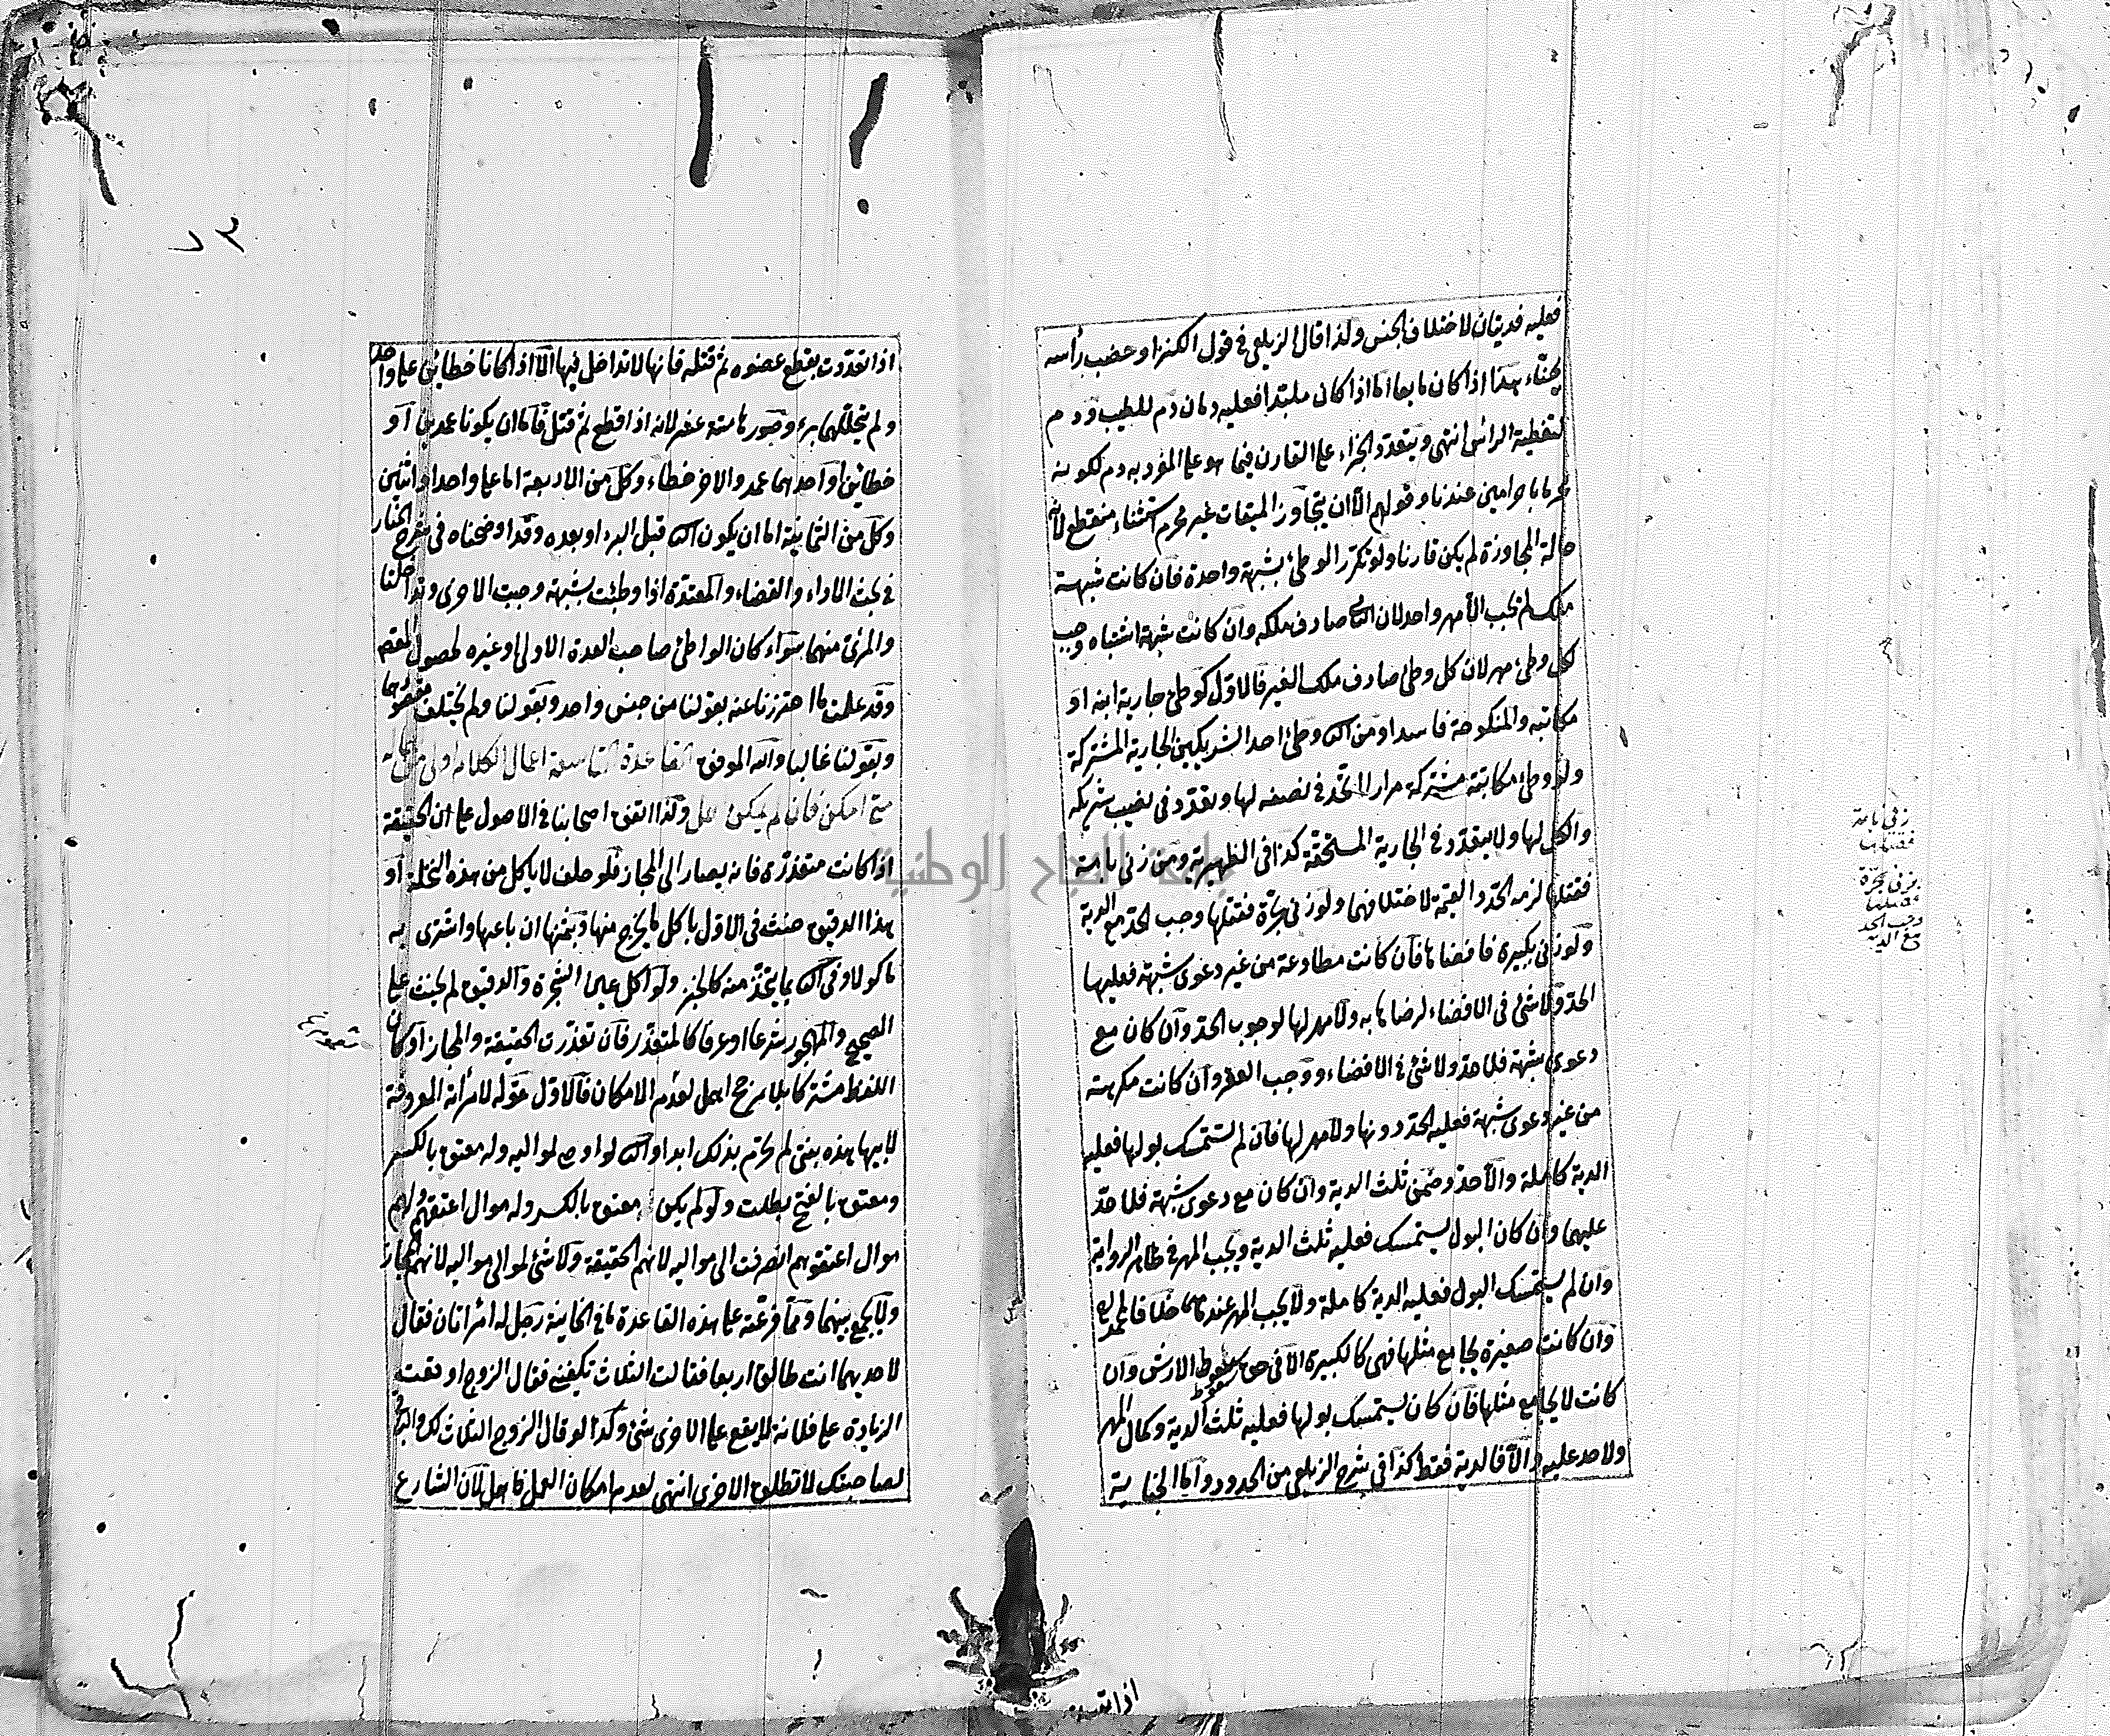 فعليه فديتان لاختلاف الجنس ولذا قال الزيلعي في قول الكنز او خضب رأسه
بحناء هذا اذا كان مايعا اما اذا كان ملبدا فعليه دمان دم للطيب ودم
لتغطية الرأس انتهى ويتعدد الجزاء على القارن فيما هو على المفرد به دم لكونه
محرما باحرامين عندنا وقولهم الا ان يتجاوز الميقات غير محرم استثناء منقطع لانه
حالة المجاوزة لم يكن قارنا ولو تكرر الوطئ بشبهة واحدة فان كانت شبهة
ملك لم يجب الا مهر واحد لان الثاني صادف ملكه وان كانت شبهة اشتباه وجب
لكل وطئ مهر لان كل وطئ صادف ملك الغير فالاول كوطئ جارية ابنه او
مكاتبه والمنكوحة فاسدا ومن الثاني وطئ احد الشريكين الجارية المشتركة
ولو وطئ مكاتبة مشتركة مرارا اتحد في نصفه لها وتعدد في نصيب شريكه
والكل لها ولا يتعدد في الجارية المستحقة كذا في الظهيرية ومن زنى بامة
فقتلها لزمه الحد والقيمة لاختلافهما ولو زنى بحرة فقتلها وجب الحد مع الدية
ولو زنى بكبيرة فافضاها فان كانت مطاوعة من غير دعوى شبهة فعليهما
الحد ولا شئ في الافضاء لرضاها به ولا مهر لها لوجوب الحد وان كان مع
دعوى شبهة فلا حد ولا شئ في الافضاء ووجب العقر وان كانت مكرهة
من غير دعوى شبهة فعليه الحد دونها ولا مهر لها فان لم يستمسك بولها فعليه
الدية كاملة والا حد وضمن ثلث الدية وان كان مع دعوى شبهة فلا حد
عليهما وان كان البول يستمسك فعليه ثلث الدية ويجب المهر في ظاهر الرواية
وان لم يستمسك البول فعليه الدية كاملة ولا يجب المهر عندهما خلافا لمحمد
وان كانت صغيرة يجامع مثلها فهي كالكبيرة الا في حق سقوط الارش وان
كانت لا يجامع مثلها فان كان يستمسك بولها فعليه ثلث الدية وكمال المهر
ولا حد عليه والا فالدية فقط كذا في شرح الزيلعي من الحدود واما الجناية
زنى بامة
فقتلها
زنى بحرة
فقتلها
وجب الحد
مع الدية
٧٣
اذا تعددت بقطع عضوه ثم قتله فانها لا تداخل فيها الا اذا كانا خطائين على واحد
ولم يتخللهما برء وصورها ستة عشر لانه اذا قطع ثم قتل فاما ان يكونا عمدين او
خطائين او احدهما عمد والاخر خطاء وكل من الاربعة اما على واحد او اثنين
وكل من الثمانية اما ان يكون الثاني قبل البرء او بعده وقد اوضحناه في شرح المنار
في بحث الاداء والقضاء والمعتدة اذا وطئت بشبهة وجبت الاخرى وتداخلتا
والمرئي منهما سواء كان الواطئ صاحب العدة الاولى او غيره لحصول المقصود
وقد علمت ما احترزنا عنه بقولنا من جنس واحد وبقولنا ولم يختلف مقصودهما
وبقولنا غالبا والله الموفق القاعدة التاسعة اعمال الكلام اولى من اهماله
متى امكن فان لم يمكن اهمل ولذا اتفق اصحابنا في الاصول على ان الحقيقة
اذا كانت متعذرة فانه يصار الى المجاز فلو حلف لا ياكل من هذه النخلة او
هذا الدقيق حنث في الاول باكل ما يخرج منها وبثمنها ان باعها واشترى به
ماكولا وفي الثاني بما يتخذ منه كالخبز ولو اكل عين الشجرة والدقيق لم يحنث على
الصحيح والمهجور شرعا او عرفا كالمتعذر فان تعذرت الحقيقة والمجاز او كان
اللفظ مشتركا بلا مرجح اهمل لعدم الامكان فالاول قوله لامرأته المعروفة
لابيها هذه بنتي لم تحرم بذلك ابدا والثاني لو اوصى لمواليه وله معتق بالكسر
ومعتق بالفتح بطلت ولو لم يكن له معتق بالكسر وله موال اعتقهم ولهم
موال اعتقوهم انصرفت الى مواليه لانهم الحقيقة ولا شئ لموالي مواليه لانهم المجاز
ولا يجمع بينهما ومما فرعته على هذه القاعدة ما في الخانية رجل له امرأتان فقال
لاحديهما انت طالق اربعا فقالت الثلاث تكفيني فقال الزوج اوقعت
الزيادة على فلانة لا يقع على الاخرى شئ وكذا لو قال الزوج الثلاث لك والباقي
لصاحبتك لا تطلق الاخرى انتهى لعدم امكان العمل فاهمل لان الشارع